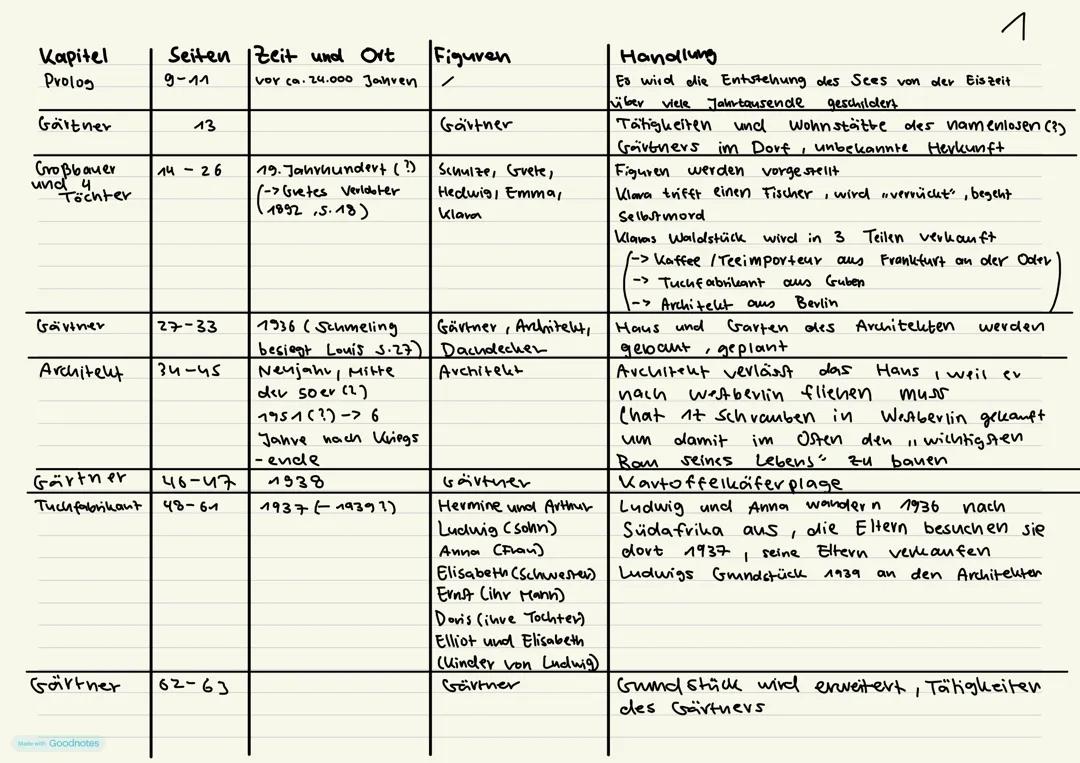 1
Kapitel Seiten Zeit und Ort Figuren Handlung
Prolog 9-11 vor ca. 24.000 Jahren / Es wird die Entstehung des Sees von der Eiszeit
über viele Jahrtausende geschildert
Gärtner 13 Gärtner Tätigkeiten und Wohnstätte des namenlosen (?)
Gärtners im Dorf, unbekannte Herkunft
Großbauer 14 - 26 19. Jahrhundert (?) Schulze, Grete, Figuren werden vorgestellt
und 4 (-> Gretes Verlobter Hedwig, Emma, Klara trifft einen Fischer, wird "verrückt", begeht
Töchter 1892, S. 18) Klara Selbstmord
Klaras Waldstück wird in 3 Teilen verkauft
(-> Kaffee / Teeimporteur aus Frankfurt an der Oder
-> Tuchfabrikant aus Guben
-> Architekt aus Berlin)
Gärtner 27-33 1936 (Schmeling Gärtner, Architekt, Haus und Garten des Architekten werden
besiegt Louis S.27) Dachdecker gebaut, geplant
Architekt 34-45 Neujahr, Mitte Architekt Architekt verlässt das Haus, weil er
der 50er (?) nach Westberlin fliehen muss
1951 (?) -> 6 (hat 1t Schrauben in Westberlin gekauft
Jahre nach Kriegs um damit im Osten den "wichtigsten
-ende Bau seines Lebens" zu bauen
Gärtner 46-47 1938 Gärtner Kartoffelkäferplage
Tuchfabrikant 48-61 1937 (- 1939?) Hermine und Arthur Ludwig und Anna wandern 1936 nach
Ludwig (Sohn) Südafrika aus, die Eltern besuchen sie
Anna (Frau) dort 1937, seine Eltern verkaufen
Elisabeth (Schwester) Ludwigs Grundstück 1939 an den Architekten
Ernst (ihr Mann)
Doris (ihre Tochter)
Elliot und Elisabeth
(Kinder von Ludwig)
Gärtner 62-63 Gärtner Grundstück wird erweitert, Tätigkeiten
des Gärtners
Made with Goodnotes